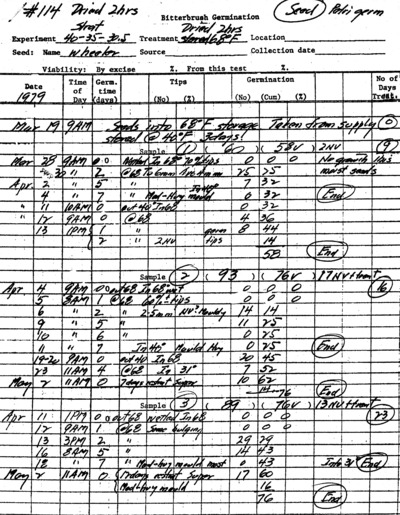 #114 Dried 2hrs
Strat
Bitterbrush Germination
Seed Petri germ
Dried 2hrs
Experiment 40-35-30.5 Treatment stored 68°F Location
Seed: Name Wheeler Source Collection date
Viability: By excise %. From this test %
Date Time of Day Germ. time (days) Tips (No) (%) Germination (No) (Cum) (%) No of Days Treat.
1979
Mar 19 9AM Seeds into 68°F storage Taken from supply 0
stored @ 40°F 3days!
Sample 1 ( 60 ) ( 58V ) 2NV 9
Mar 28 9AM 0 0 In 68° 70% tips 0 0 0 No growth
30 " 2 @68 25 25 moist seeds
Apr 2 " 5 " In 40° 7 32
4 " 7 " Mod-Hvy mould 0 32 End
" 11 10AM 0 out 40 In 68 0 32
" 12 9AM 0 @68 4 36
13 1PM 1 " germ 8 44
2 " 2NV tips 14
58 End
Sample 2 ( 93 ) ( 76V ) 17NV 16
Apr 4 9AM 0 0 out 68 In 68 wet 0 0 0
5 8AM 1 @68 60% tips 0 0 0
6 " 2 " 2-5mm NV? Mouldy 14 14
9 " 5 " 11 25
10 " 6 " 0 25
11 " 7 In 45° Mould Hvy 0 25 End
19-20 9AM 0 out 40 In 68 20 45
23 11AM 4 @68 In 31° 7 52
May 2 11AM 0 7days Super 10 62
14 76 End
Sample 3 ( 89 ) ( 76V ) 13NV 23
Apr 11 1PM 0 0 out 68 wetted In 68 0 0 0
12 9AM 1 @68 Some bulging 0 0 0
13 3PM 2 " 29 29
16 8AM 5 " 14 43
18 " 7 " Mod-hvy mould most 0 43 Into 31° End
May 2 11AM 0 17days Super 17 60
Mod-hvy mould 16
76 End